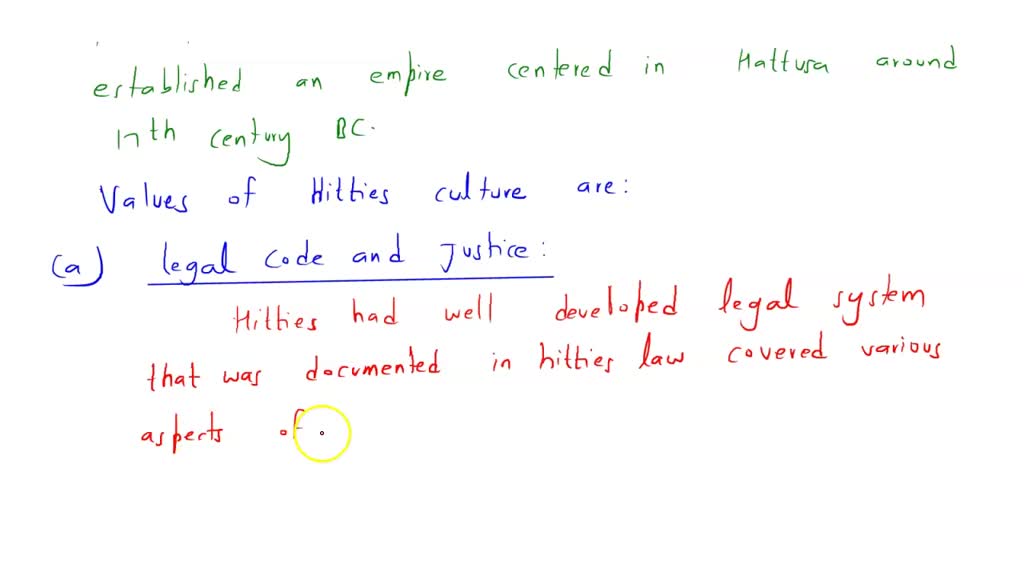 established an empire centered in Hattusa around
17th century BC.
Values of Hitties culture are:
(a) legal code and justice:
Hitties had well developed legal system
that was documented in hitties law covered various
aspects of